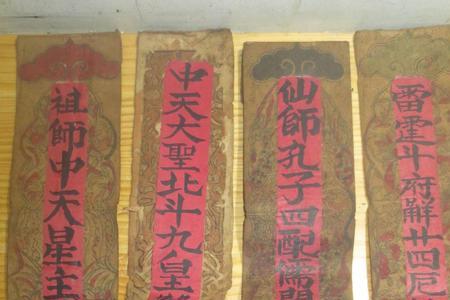 雷霆斗府解廿四厄
仙師孔子四配儒門
中天大聖北斗九皇
祖師中天星主